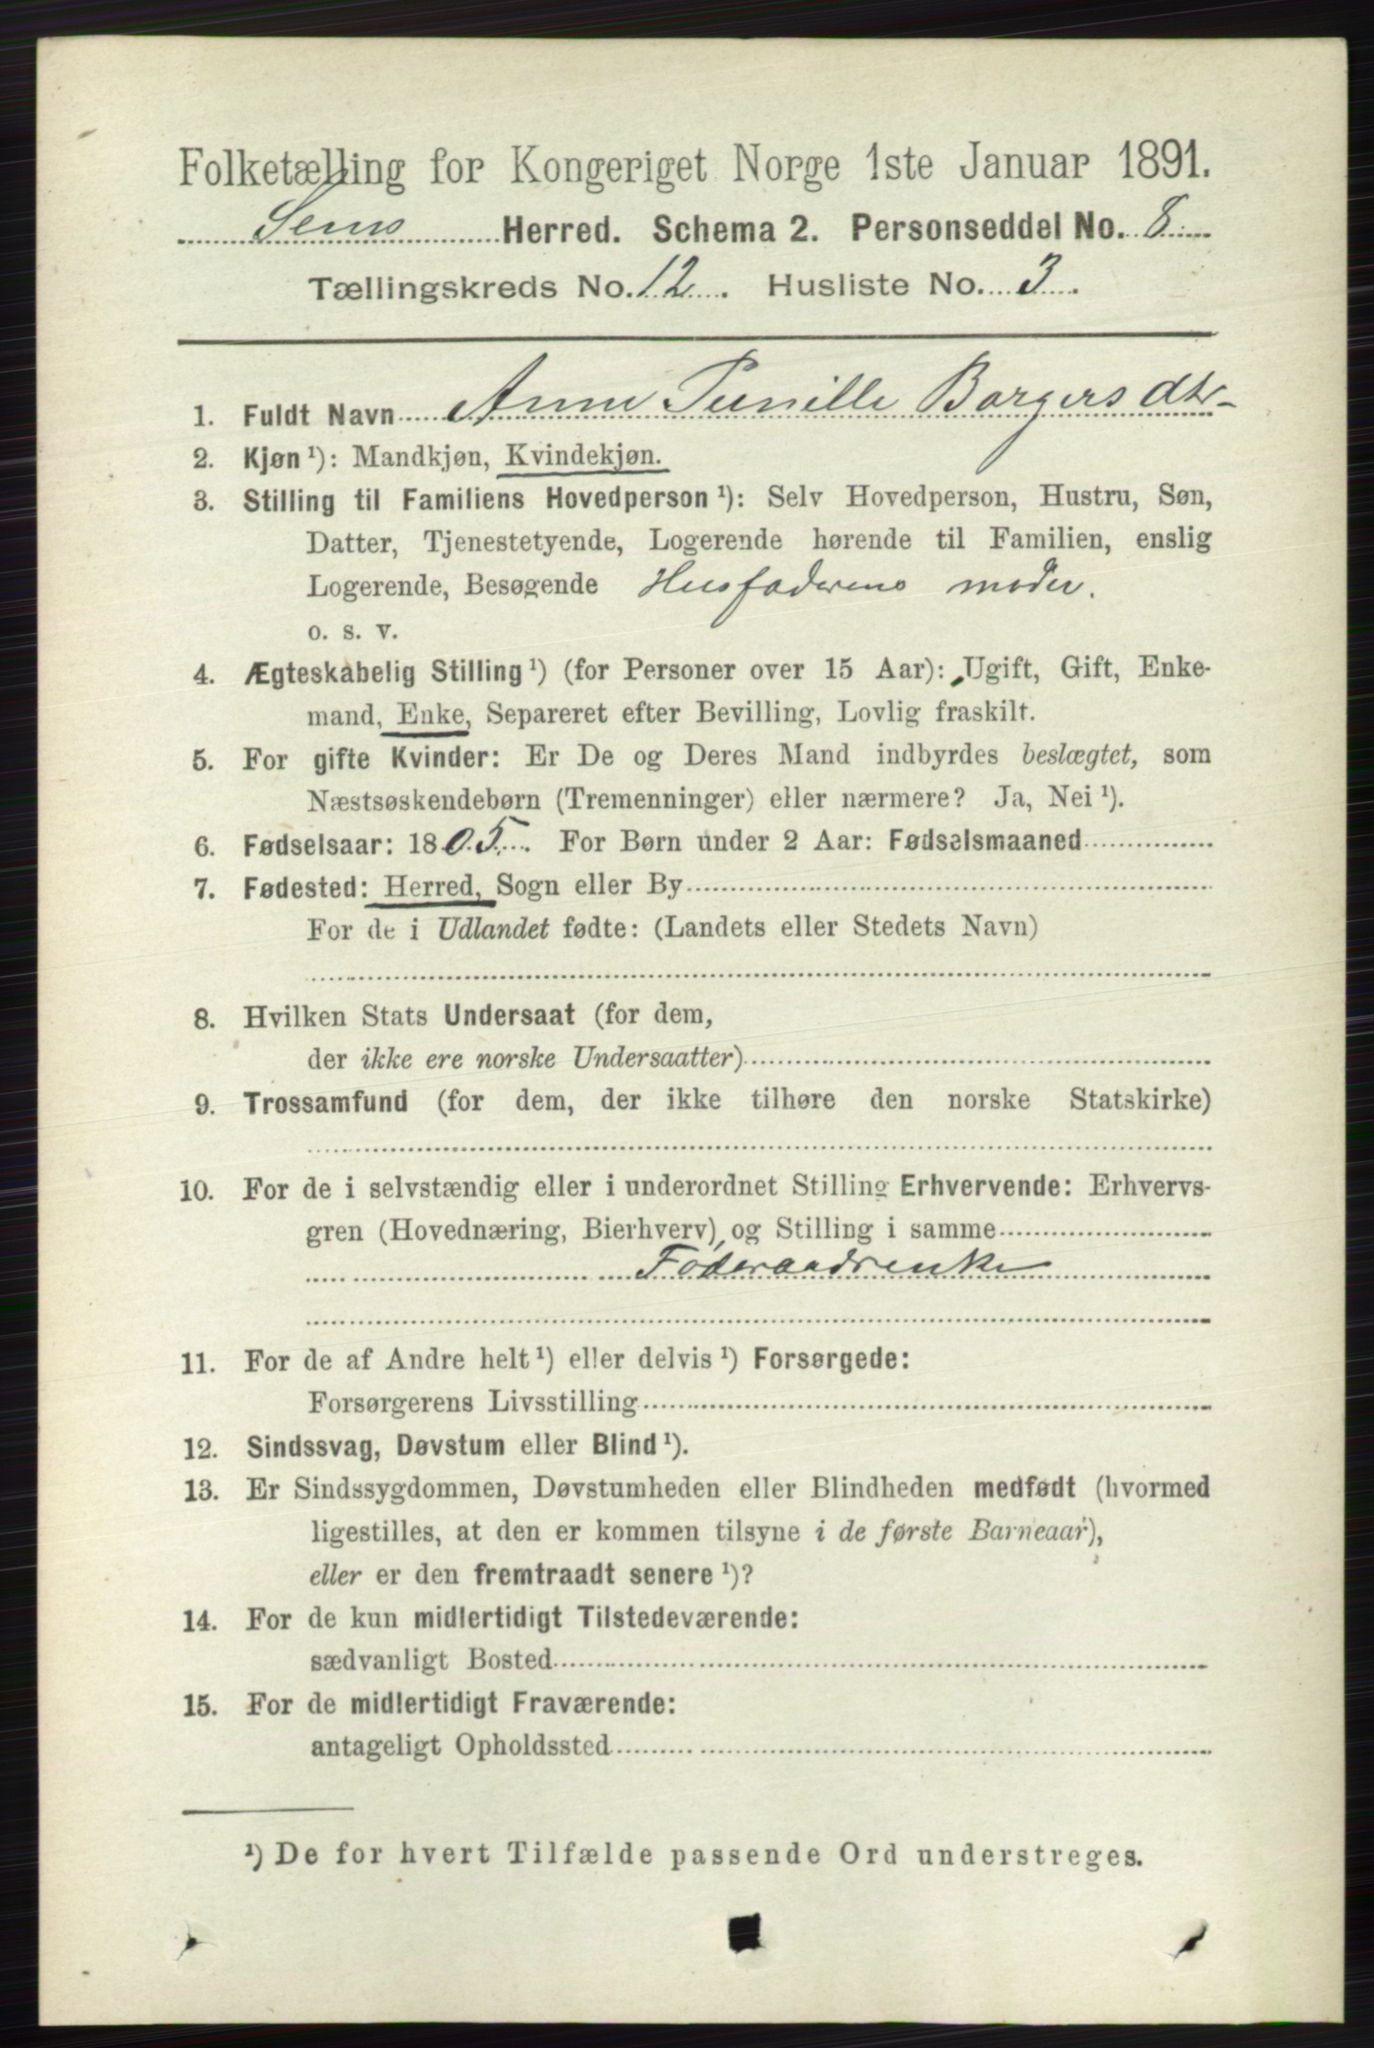 Folketælling for Kongeriget Norge 1ste Januar 1891.
Sems Herred. Schema 2. Personseddel No. 8
Tællingskreds No. 12. Husliste No. 3.
1. Fuldt Navn Anne Pernille Borgersdtr
2. Kjøn ¹): Mandkjøn, Kvindekjøn.
3. Stilling til Familiens Hovedperson ¹): Selv Hovedperson, Hustru, Søn,
Datter, Tjenestetyende, Logerende hørende til Familien, enslig
Logerende, Besøgende Husfaderens moder.
o. s. v.
4. Ægteskabelig Stilling ¹) (for Personer over 15 Aar): Ugift, Gift, Enke-
mand, Enke, Separeret efter Bevilling, Lovlig fraskilt.
5. For gifte Kvinder: Er De og Deres Mand indbyrdes beslægtet, som
Næstsøskendebørn (Tremenninger) eller nærmere? Ja, Nei ¹).
6. Fødselsaar: 1805. For Børn under 2 Aar: Fødselsmaaned
7. Fødested: Herred, Sogn eller By
For de i Udlandet fødte: (Landets eller Stedets Navn)
8. Hvilken Stats Undersaat (for dem,
der ikke ere norske Undersaatter)
9. Trossamfund (for dem, der ikke tilhøre den norske Statskirke)
10. For de i selvstændig eller i underordnet Stilling Erhvervende: Erhvervs-
gren (Hovednæring, Bierhverv) og Stilling i samme
Føderaadsenke
11. For de af Andre helt ¹) eller delvis ¹) Forsørgede:
Forsørgerens Livsstilling
12. Sindssvag, Døvstum eller Blind ¹).
13. Er Sindssygdommen, Døvstumheden eller Blindheden medfødt (hvormed
ligestilles, at den er kommen tilsyne i de første Barneaar),
eller er den fremtraadt senere ¹)?
14. For de kun midlertidigt Tilstedeværende:
sædvanligt Bosted
15. For de midlertidigt Fraværende:
antageligt Opholdssted
¹) De for hvert Tilfælde passende Ord understreges.